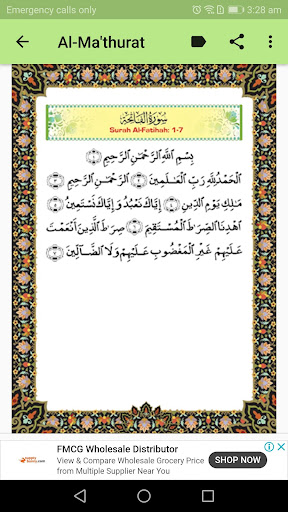 Emergency calls only
3:28 am
Al-Ma'thurat
سورة الفاتحة
Surah Al-Fatihah: 1-7
بِسْمِ اللَّهِ الرَّحْمَٰنِ الرَّحِيمِ ﴿١﴾
الْحَمْدُ لِلَّهِ رَبِّ الْعَالَمِينَ ﴿٢﴾ الرَّحْمَٰنِ الرَّحِيمِ ﴿٣﴾
مَالِكِ يَوْمِ الدِّينِ ﴿٤﴾ إِيَّاكَ نَعْبُدُ وَإِيَّاكَ نَسْتَعِينُ ﴿٥﴾
اهْدِنَا الصِّرَاطَ الْمُسْتَقِيمَ ﴿٦﴾ صِرَاطَ الَّذِينَ أَنْعَمْتَ
عَلَيْهِمْ غَيْرِ الْمَغْضُوبِ عَلَيْهِمْ وَلَا الضَّالِّينَ ﴿٧﴾
FMCG Wholesale Distributor
View & Compare Wholesale Grocery Price
from Multiple Supplier Near You
GO